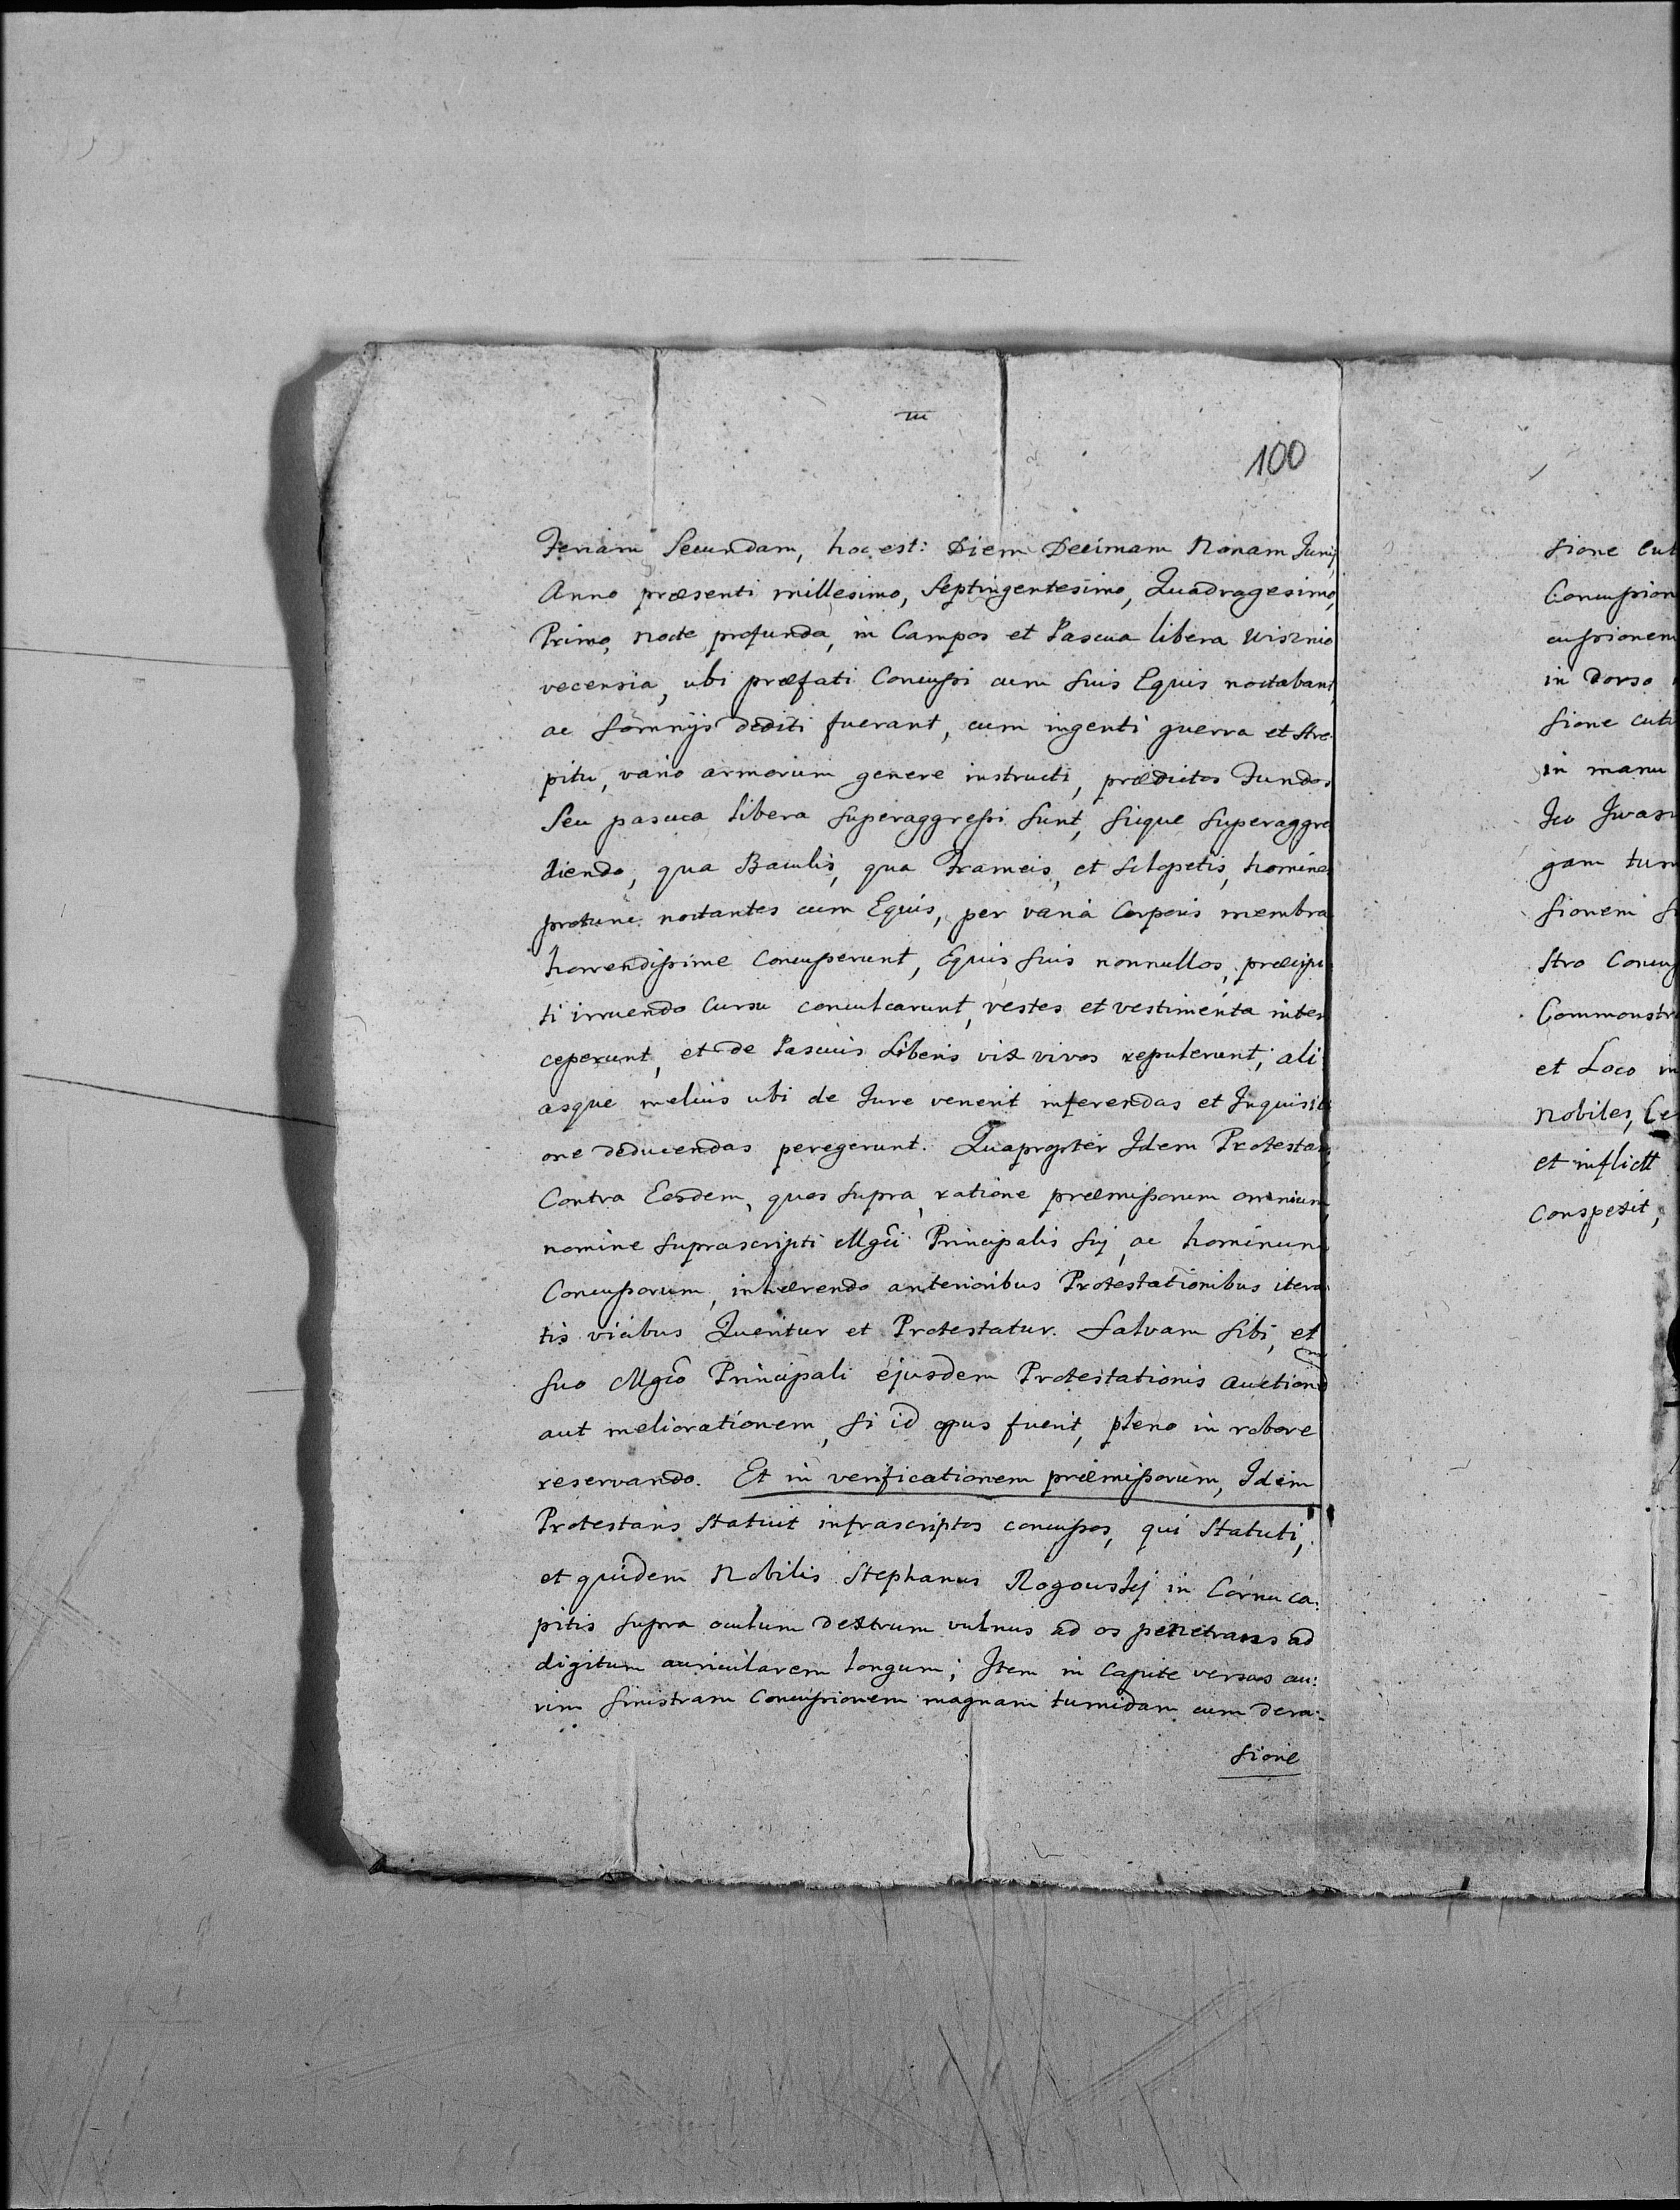 100
Feriam Secundam, hoc est: Diem Decimam Nonam Junij
Anno præsenti millesimo, Septingentesimo, Quadragesimo,
Primo, nocte profunda, in Campos et Pascua libera Wisznio
vecensia, ubi præfati Concussi cum suis Equis noctabant,
ac somnijs dediti fuerant, cum ingenti guerra et stre
pitu, vario armorum genere instructi, prædictos Fundos
Seu pascua libera superaggressi sunt, sicque superaggre
diendo, qua Baculis, qua Frameis, et sclopetis, homines
protunc noctantes cum Equis, per varia Corporis membra
horrendissime concusserunt, Equis suis nonnullos, præcipi
ti irruendo cursu conculcarunt, vestes et vestimenta inter
ceperunt, et de Pascuis Liberis vix vivos repulerunt, ali
asque melius ubi de Jure venerit inferendas et Inquisiti
one deducendas peregerunt. Quapropter Idem Protestans
Contra Eosdem, quos supra, ratione præmissorum omnium,
nomine suprascripti Mgci Principalis sui, ac hominum
Concussorum, inhærendo anterioribus Protestationibus itera
tis vicibus Queritur et Protestatur. Salvam sibi, et
suo Mgco Principali ejusdem Protestationis auctione
aut meliorationem, si id opus fuerit, pleno in robore
reservando. Et in verificationem præmissorum, Idem
Protestans statuit infrascriptos concussos, qui statuti,
et quidem Nobilis Stephanus Rogowskj in Cornu ca:
pitis supra oculum dextrum vulnus ad os penetrans ad
digitum auricularem longum; Item in Capite versus au:
rim sinistram Concussionem magnam tumidam cum dera:
sione
sione cut
Concussion
cussionem
in dorso
sione cut
in manu
Iwas
gam tum
sionem
stro Concus
Commonstr
et Loco
Nobiles, Ce
et inflictt
conspexit,